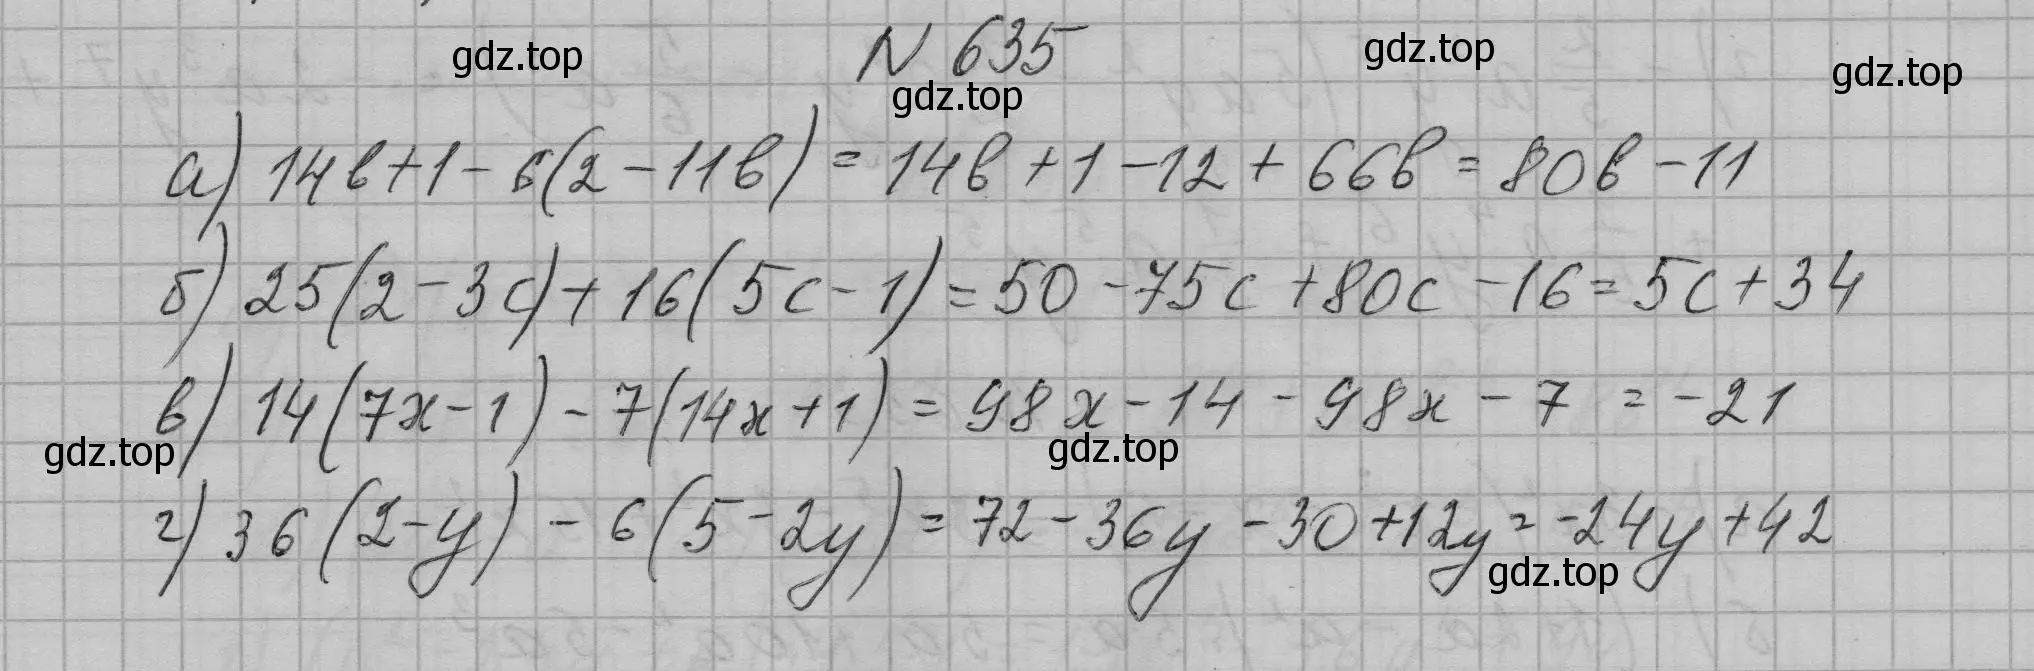 N 635
gdz.top
gdz.top
gdz.top
gdz.top
а) 14в+1-6(2-11в)=14в+1-12+66в=80в-11
б) 25(2-3с)+16(5с-1)=50-75с+80с-16=5с+34
в) 14(7х-1)-7(14х+1)=98х-14-98х-7=-21
gdz.top
gdz.top
г) 36(2-у)-6(5-2у)=72-36у-30+12у=-24у+42
gdz.top